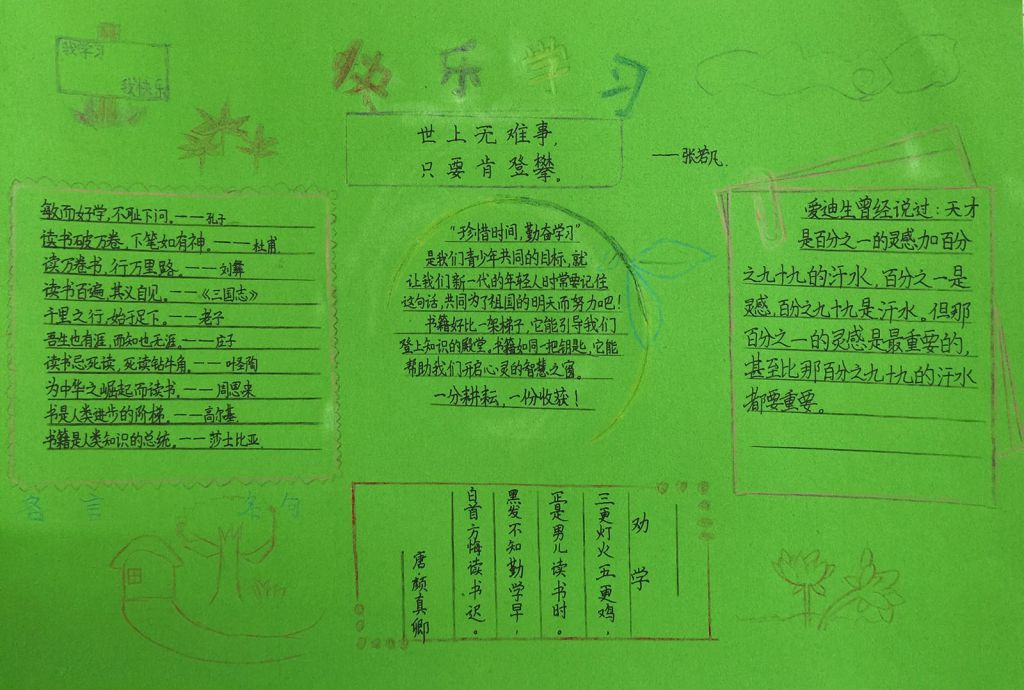 我学习
我快乐
快乐学习
世上无难事，
只要肯登攀。
——张若凡.
敏而好学，不耻下问。——孔子
读书破万卷，下笔如有神。——杜甫
读万卷书，行万里路。——刘彝
读书百遍，其义自见。——《三国志》
千里之行，始于足下。——老子
吾生也有涯，而知也无涯。——庄子
读书忌死读，死读钻牛角。——叶圣陶
为中华之崛起而读书。——周恩来
书是人类进步的阶梯。——高尔基
书籍是人类知识的总统。——莎士比亚
名言 名句
“珍惜时间，勤奋学习”
是我们青少年共同的目标，就
让我们新一代的年轻人时常要记住
这句话，共同为了祖国的明天而努力吧！
书籍好比一架梯子，它能引导我们
登上知识的殿堂。书籍如同一把钥匙，它能
帮助我们开启心灵的智慧之窗。
一分耕耘，一份收获！
爱迪生曾经说过：天才
是百分之一的灵感，加百分
之九十九的汗水，百分之一是
灵感，百分之九十九是汗水。但那
百分之一的灵感是最重要的，
甚至比那百分之九十九的汗水
都要重要。
劝学
三更灯火五更鸡，
正是男儿读书时。
黑发不知勤学早，
白首方悔读书迟。
唐颜真卿